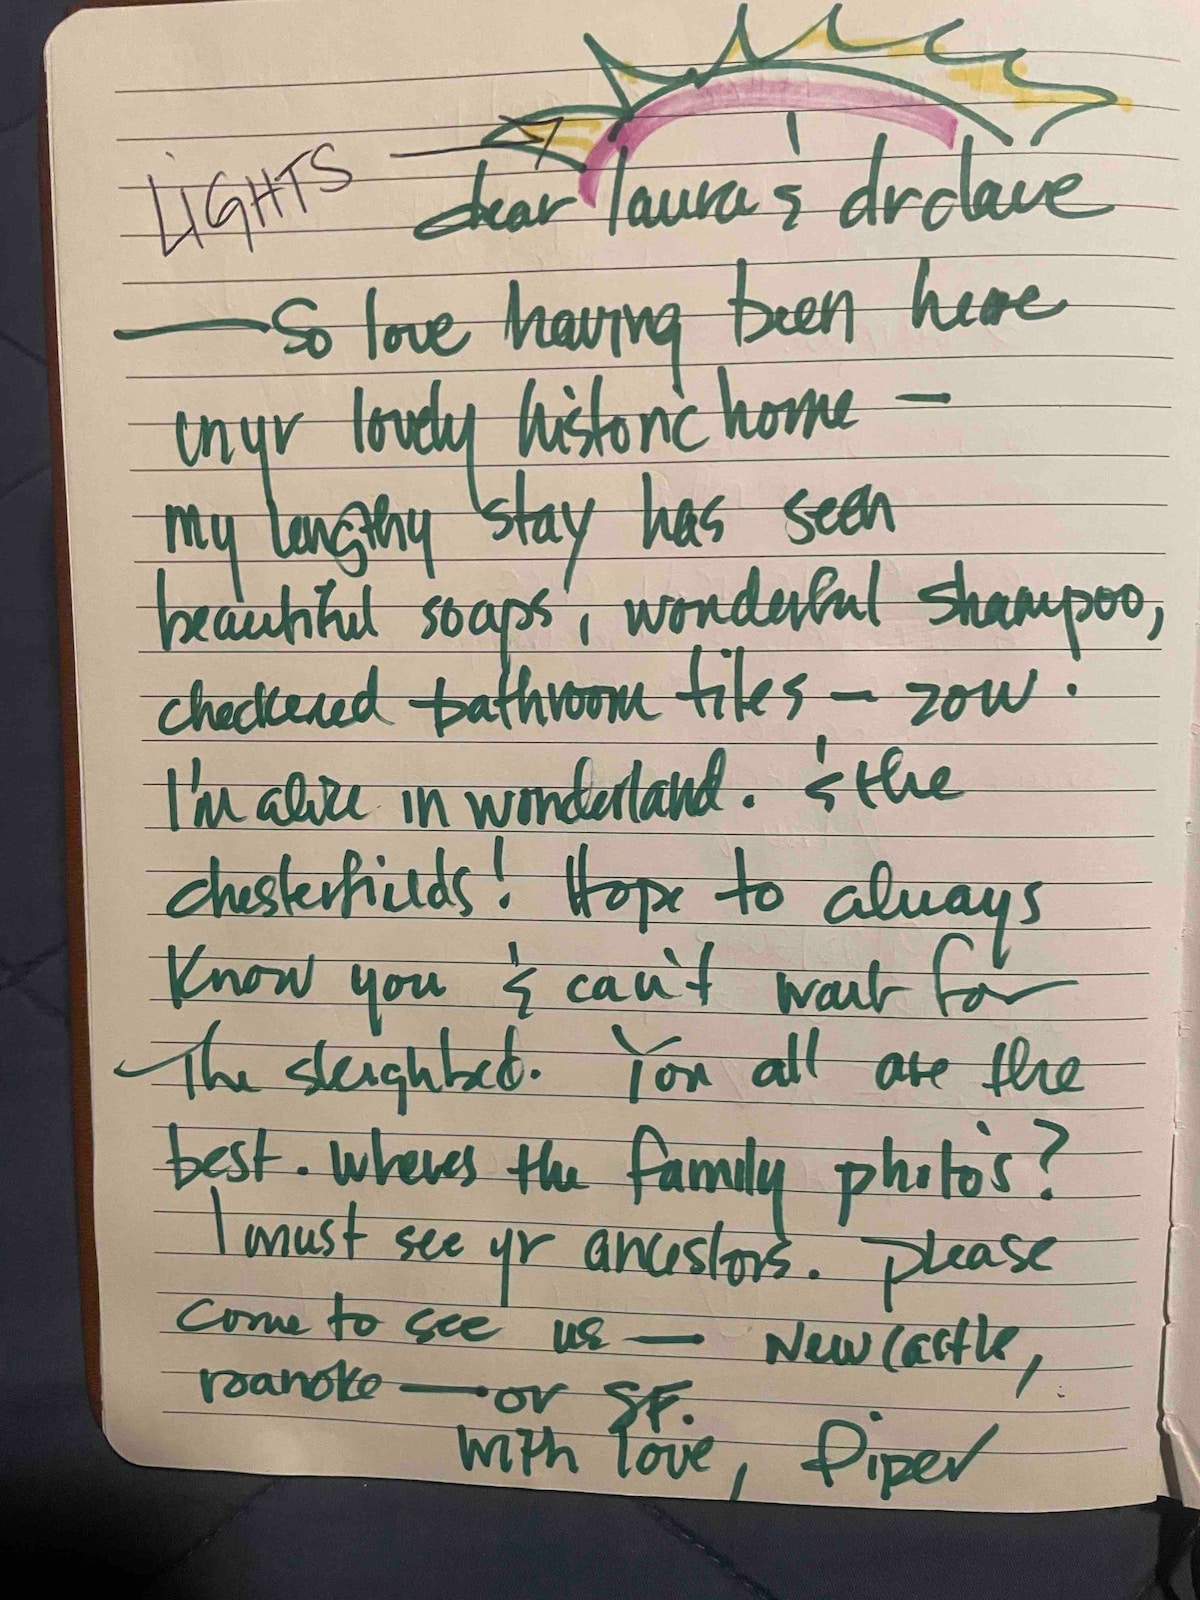 LIGHTS
dear laura & dr dave
— So love having been here
in yr lovely historic home —
my lengthy stay has seen
beautiful soaps, wonderful shampoo,
checkered bathroom tiles — zow.
I'm alice in wonderland. & the
chesterfields! Hope to always
know you & can't wait for
The sleighbed. You all are the
best. Wheres the family photo's?
I must see yr ancestors. please
come to see us — Newcastle,
roanoke — or SF.
with love, Piper